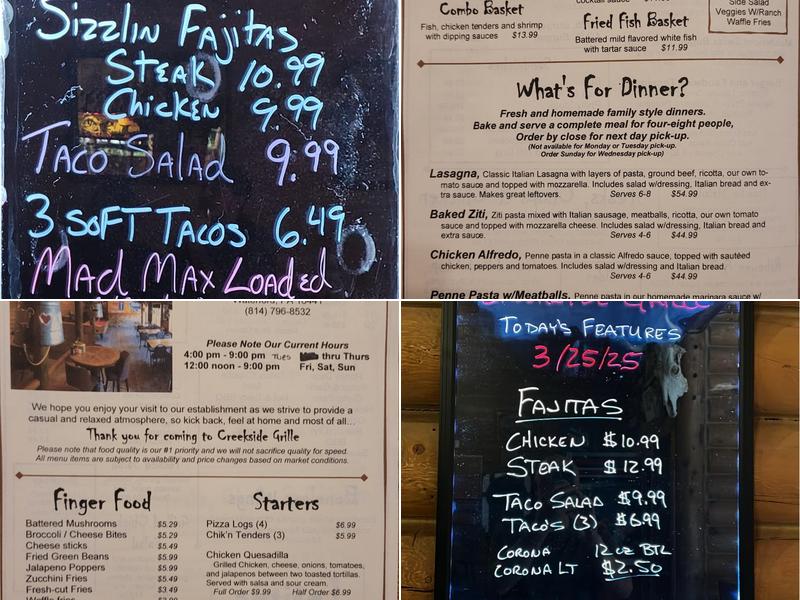 Sizzlin Fajitas
Steak 10.99
Chicken 9.99
Taco Salad 9.99
3 Soft Tacos 6.49
Mad Max Loaded
Combo Basket
Fish, chicken tenders and shrimp
with dipping sauces $13.99
Fried Fish Basket
Battered mild flavored white fish
with tartar sauce $11.99
Side Salad
Veggies W/Ranch
Waffle Fries
What's For Dinner?
Fresh and homemade family style dinners.
Bake and serve a complete meal for four-eight people,
Order by close for next day pick-up.
(Not available for Monday or Tuesday pick-up.
Order Sunday for Wednesday pick-up)
Lasagna, Classic Italian Lasagna with layers of pasta, ground beef, ricotta, our own to-
mato sauce and topped with mozzarella. Includes salad w/dressing, Italian bread and ex-
tra sauce. Makes great leftovers. Serves 6-8 $54.99
Baked Ziti, Ziti pasta mixed with Italian sausage, meatballs, ricotta, our own tomato
sauce and topped with mozzarella cheese. Includes salad w/dressing, Italian bread and
extra sauce. Serves 4-6 $44.99
Chicken Alfredo, Penne pasta in a classic Alfredo sauce, topped with sautéed
chicken, peppers and tomatoes. Includes salad w/dressing and Italian bread.
Serves 4-6 $44.99
Penne Pasta w/Meatballs, Penne pasta in our homemade marinara sauce w/
Waterford, PA 16441
(814) 796-8532
Please Note Our Current Hours
4:00 pm - 9:00 pm Tues thru Thurs
12:00 noon - 9:00 pm Fri, Sat, Sun
We hope you enjoy your visit to our establishment as we strive to provide a
casual and relaxed atmosphere, so kick back, feel at home and most of all...
Thank you for coming to Creekside Grille
Please note that food quality is our #1 priority and we will not sacrifice quality for speed.
All menu items are subject to availability and price changes based on market conditions.
Finger Food
Battered Mushrooms $5.29
Broccoli / Cheese Bites $5.29
Cheese sticks $5.49
Fried Green Beans $5.99
Jalapeno Poppers $5.99
Zucchini Fries $5.49
Fresh-cut Fries $3.49
Waffle fries
Starters
Pizza Logs (4) $6.99
Chik'n Tenders (3) $5.99
Chicken Quesadilla
Grilled Chicken, cheese, onions, tomatoes,
and jalapenos between two toasted tortillas.
Served with salsa and sour cream.
Full Order $9.99 Half Order $6.99
Today's Features
3/25/25
Fajitas
Chicken $10.99
Steak $12.99
Taco Salad $9.99
Tacos (3) $6.99
Corona 12 oz BTL
Corona LT $2.50